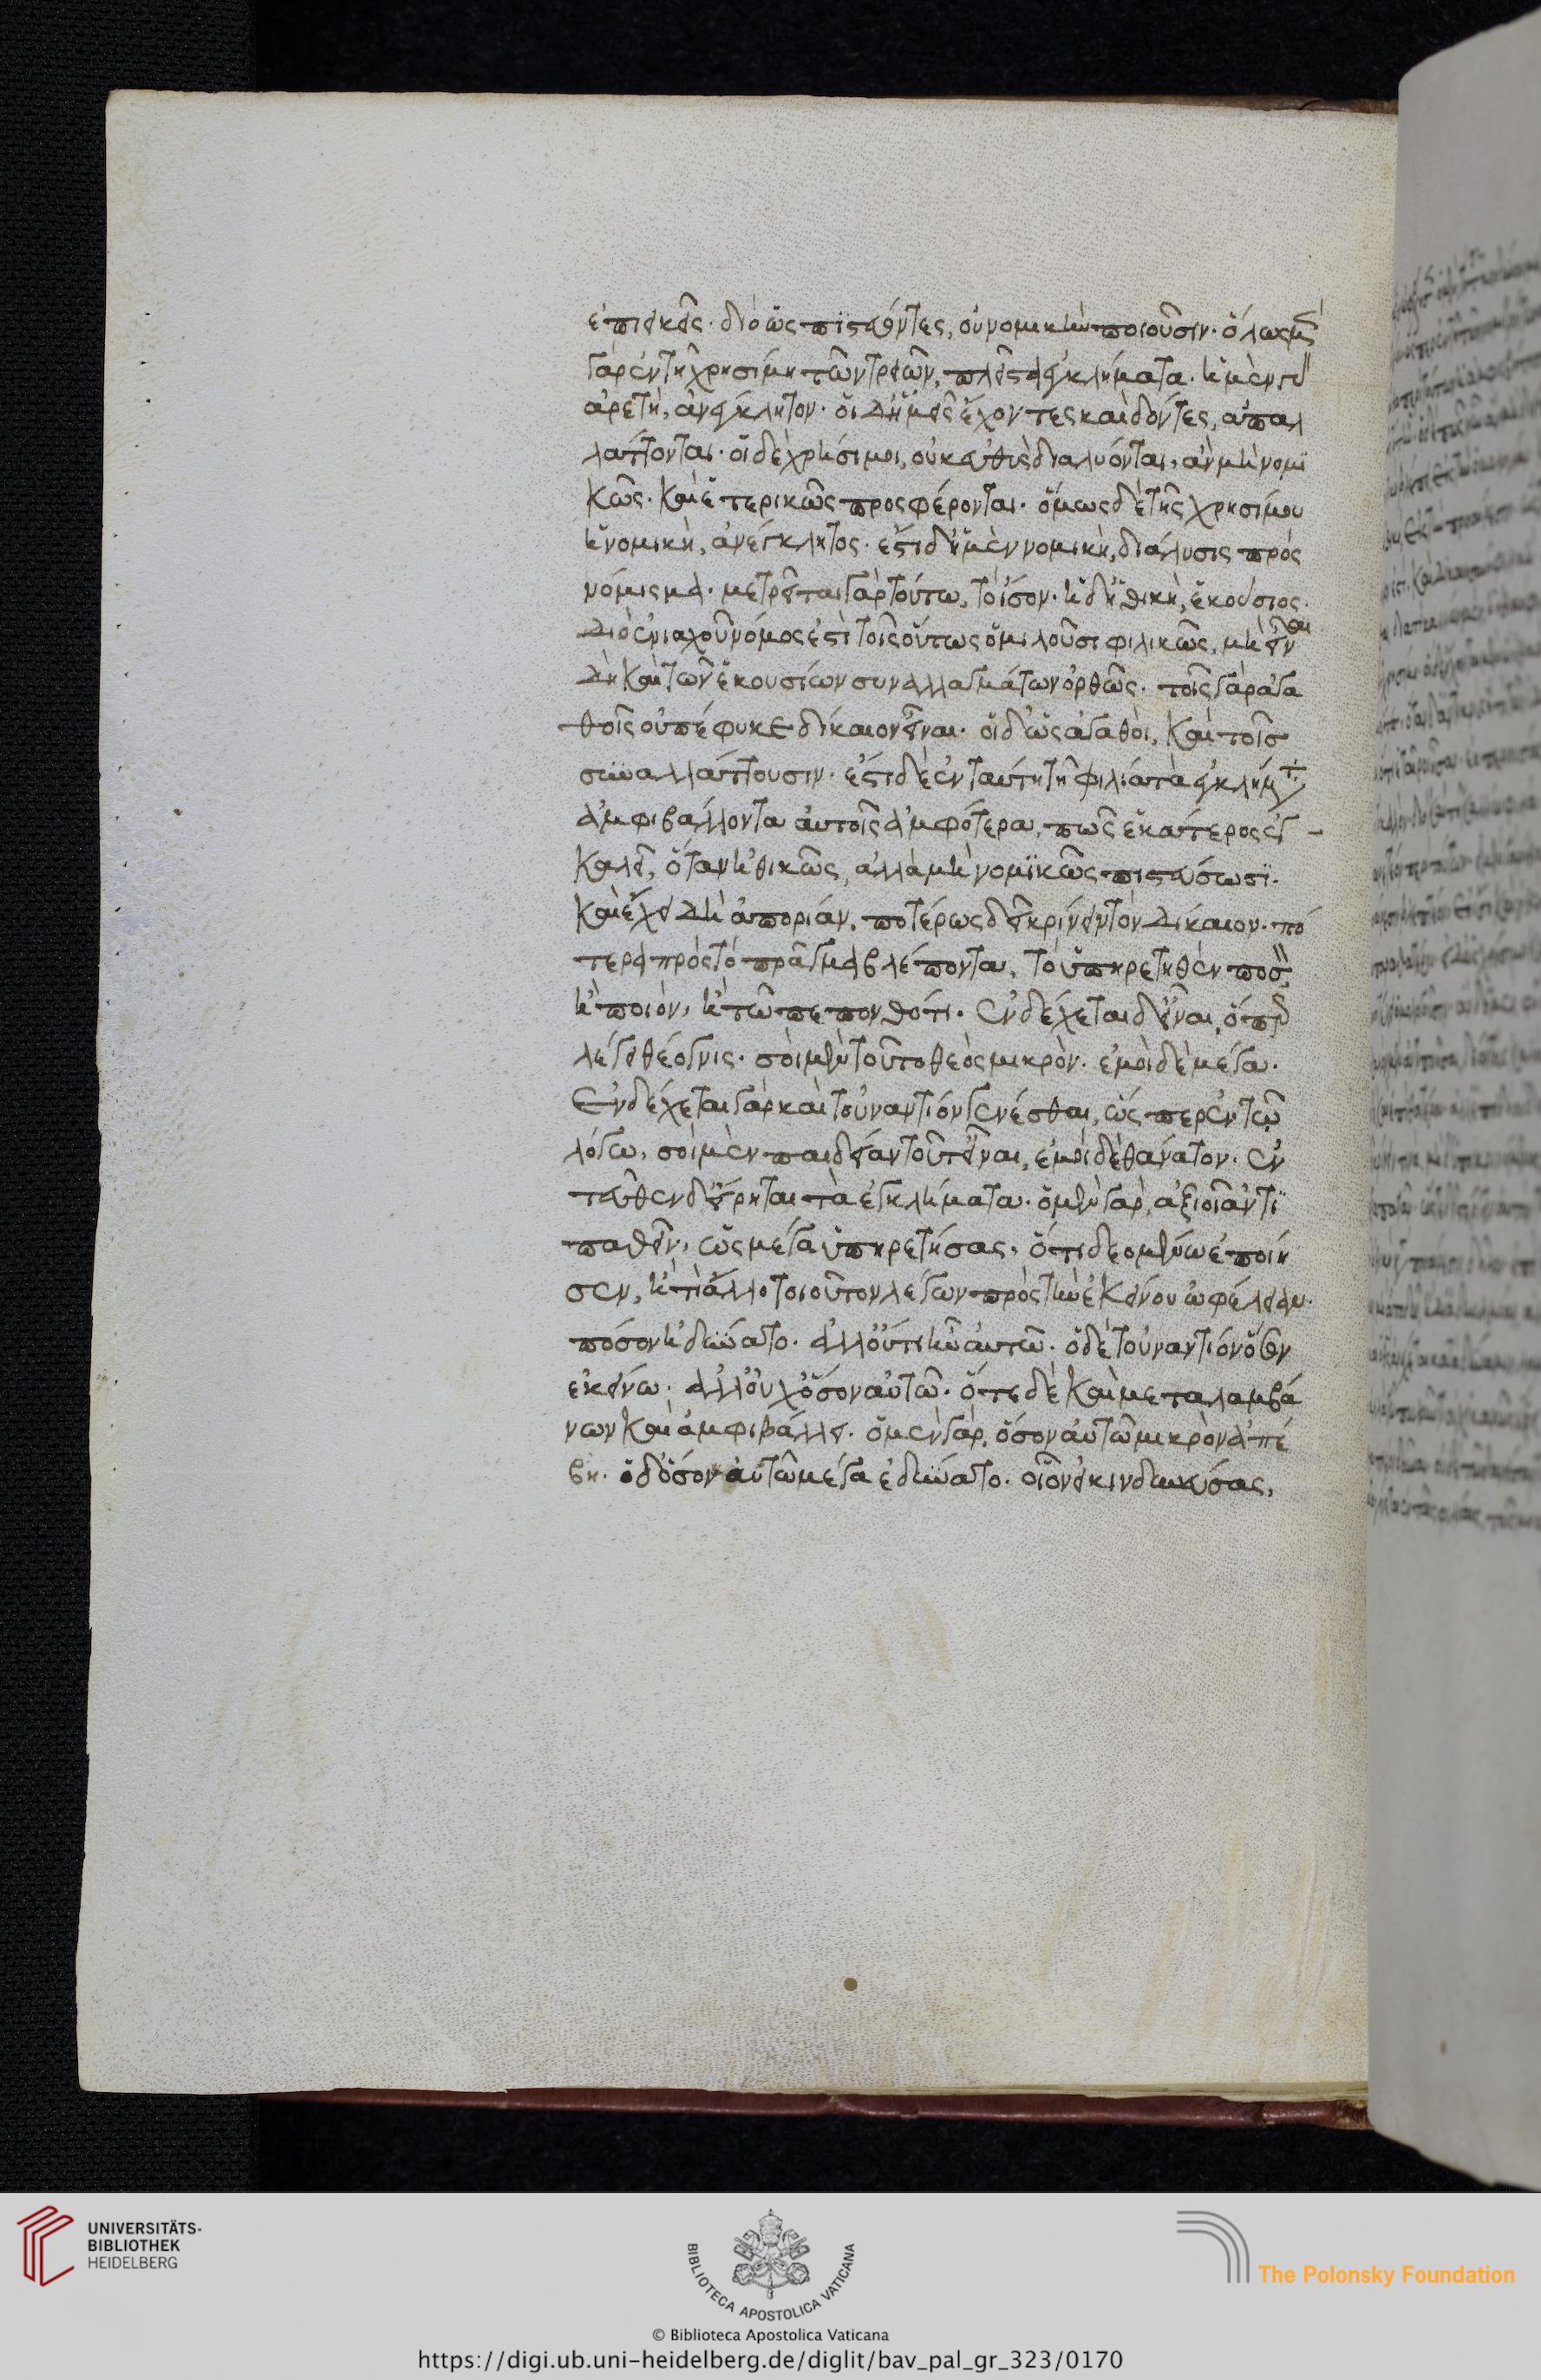 ἐπιεικεῖς. διὸ ὡς πιστεύοντες, οὐ νομικὴν ποιοῦσιν. ὅλως μὲν
γὰρ ἐν τῆ χρησίμη τῶν τριῶν, πλεῖστα ἐγκλήματα. ἡ μὲν γὰρ
ἀρετὴ, ἀνέγκλητον. οἱ δ' ἡδεῖς ἔχοντες καὶ δόντες, ἀπαλ
λάττονται. οἱ δὲ χρήσιμοι, οὐκ εὐθὺς διαλύονται, ἂν μὴ νομι
κῶς. καὶ ἑτερικῶς προσφέρονται. ὅμως δὲ τῆς χρησίμου
ἡ νομικὴ, ἀνέγκλητος. ἔστι δ' ἡ μὲν νομικὴ, διάλυσις πρὸς
νόμισμα. μετρεῖται γὰρ τούτω, τὸ ἴσον. ἡ δ' ἠθικὴ, ἑκούσιος.
διὸ ἐνιαχοῦ νόμος ἐστὶ τοῖς οὕτως ὁμιλοῦσι φιλικῶς, μὴ εἶναι
δὴ καὶ τῶν ἑκουσίων συναλλαγμάτων ὀρθῶς. τοῖς γὰρ ἀγα
θοῖς οὐ πέφυκε δίκαιον εἶναι. οἱ δ' ὡς ἀγαθοὶ, καὶ τοῖς
συναλλάττουσιν. ἔστι δὲ ἐν ταύτη τῆ φιλία τὰ ἐγκλήματα
ἀμφιβάλλοντα αὐτοῖς ἀμφότερα, πῶς ἑκάτερος ἐγ-
καλεῖ, ὅταν ἠθικῶς, ἀλλὰ μὴ νομϊκῶς πιστεύσωσϊ.
καὶ ἔχει δὴ ἀπορίαν, ποτέρως δεῖ κρίνειν τὸν δίκαιον. πό
τερα πρὸς τὸ πρᾶγμα βλέποντα, τὸ ὑπηρετηθὲν ποσὸν,
ἢ ποιὸν, ἢ τῶ πεπονθότι. ἐνδέχεται δ' εἶναι, ὅπερ
λέγει θέογνις. σοὶ μὲν τοῦτο θεὸς μικρὸν. ἐμοὶ δὲ μέγα.
Ἐνδέχεται γὰρ καὶ τοὐναντίον γενέσθαι, ὥσπερ ἐν τῶ
λόγω, σοὶ μὲν παιδείαν τοῦτ' εἶναι, ἐμοὶ δὲ θάνατον. ἐν
τεῦθεν δ' εἴρηται τὰ ἐγκλήματα. ὁ μὲν γὰρ, ἀξιοῖ ἀντι
παθεῖν, ὡς μέγα ὑπηρετήσας. ὅτι δεομένω ἐποίη
σεν, ἤ τι ἄλλο τοιοῦτον λέγων πρὸς τὴν ἐκείνου ὠφέλειαν.
πόσον ἠδύνατο. ἀλλ' οὔτι ἦν αὐτῶ. ὁ δὲ τοὐναντίον ὅσον
ἐκείνω. ἀλλ' οὐχ ὅσον αὐτῶ. ὅτε δὲ καὶ μεταλαμβά
νων καὶ ἀμφιβάλλει. ὁ μὲν γὰρ, ὅσον αὐτῶ μικρὸν ἀπέ
βη. ὁ δ' ὅσον αὐτῶ μέγα ἐδύνατο. οἷον εἰ κινδυνεύσας,
UNIVERSITÄTS-
BIBLIOTHEK
HEIDELBERG
BIBLIOTECA APOSTOLICA VATICANA
The Polonsky Foundation
© Biblioteca Apostolica Vaticana
https://digi.ub.uni-heidelberg.de/diglit/bav_pal_gr_323/0170